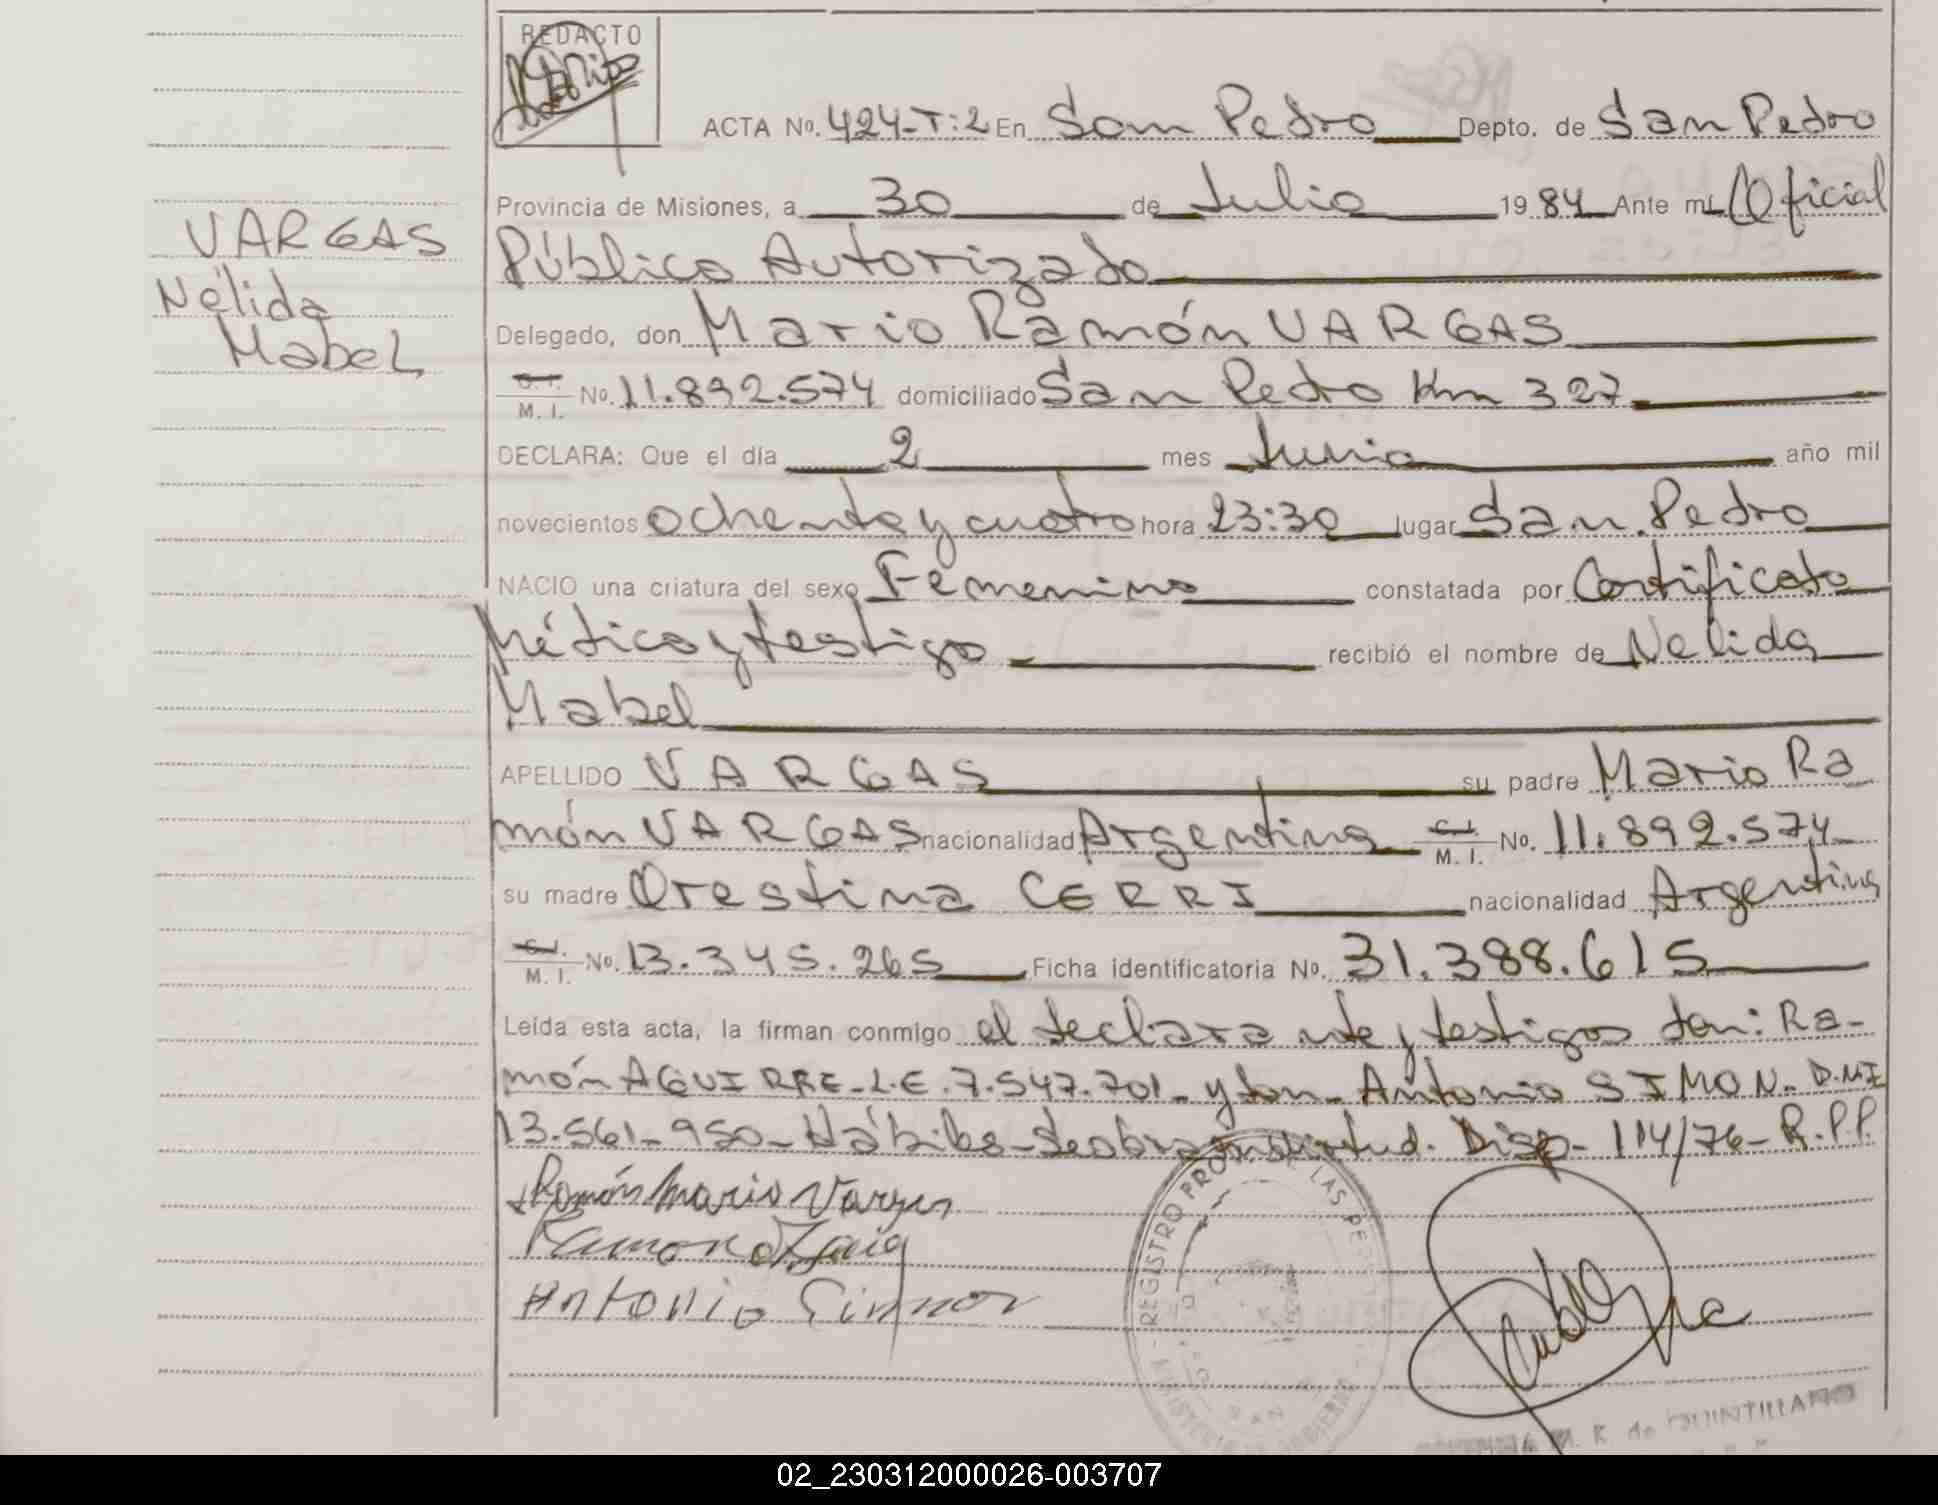 REDACTO
ACTA No. 424-T:2 En San Pedro Depto. de San Pedro
Provincia de Misiones, a 30 de Julio 1984 Ante mí Oficial
Público Autorizado
Delegado, don Mario Ramón VARGAS
C. I. M. I. No. 11.892.574 domiciliado San Pedro Km 327
DECLARA: Que el día 2 mes Junio año mil
novecientos ochenta y cuatro hora 23:30 lugar San Pedro
NACIO una criatura del sexo Femenino constatada por Certificato
Médico y testigo recibió el nombre de Nelida
Mabel
APELLIDO VARGAS su padre Mario Ra
món VARGAS nacionalidad Argentina C. I. M. I. No. 11.892.574
su madre Orestina CERRI nacionalidad Argentina
C. I. M. I. No. 13.345.265 Ficha identificatoria No. 31.388.615
Leída esta acta, la firman conmigo el declarante y testigos don: Ra-
món AGUIRRE-L.E. 7.547.701- y don- Antonio SIMON- D.N.I
13.561-950- Hábiles- Disp- 114/76- R.P.P.
VARGAS
Nélida
Mabel
Ramón Mario Vargas
Ramon
Antonio Simon
REGISTRO PROV. DE LAS PERS
MINISTERIO DE GOBIERNO
SAN
M. R. de QUINTILLANO
02_230312000026-003707